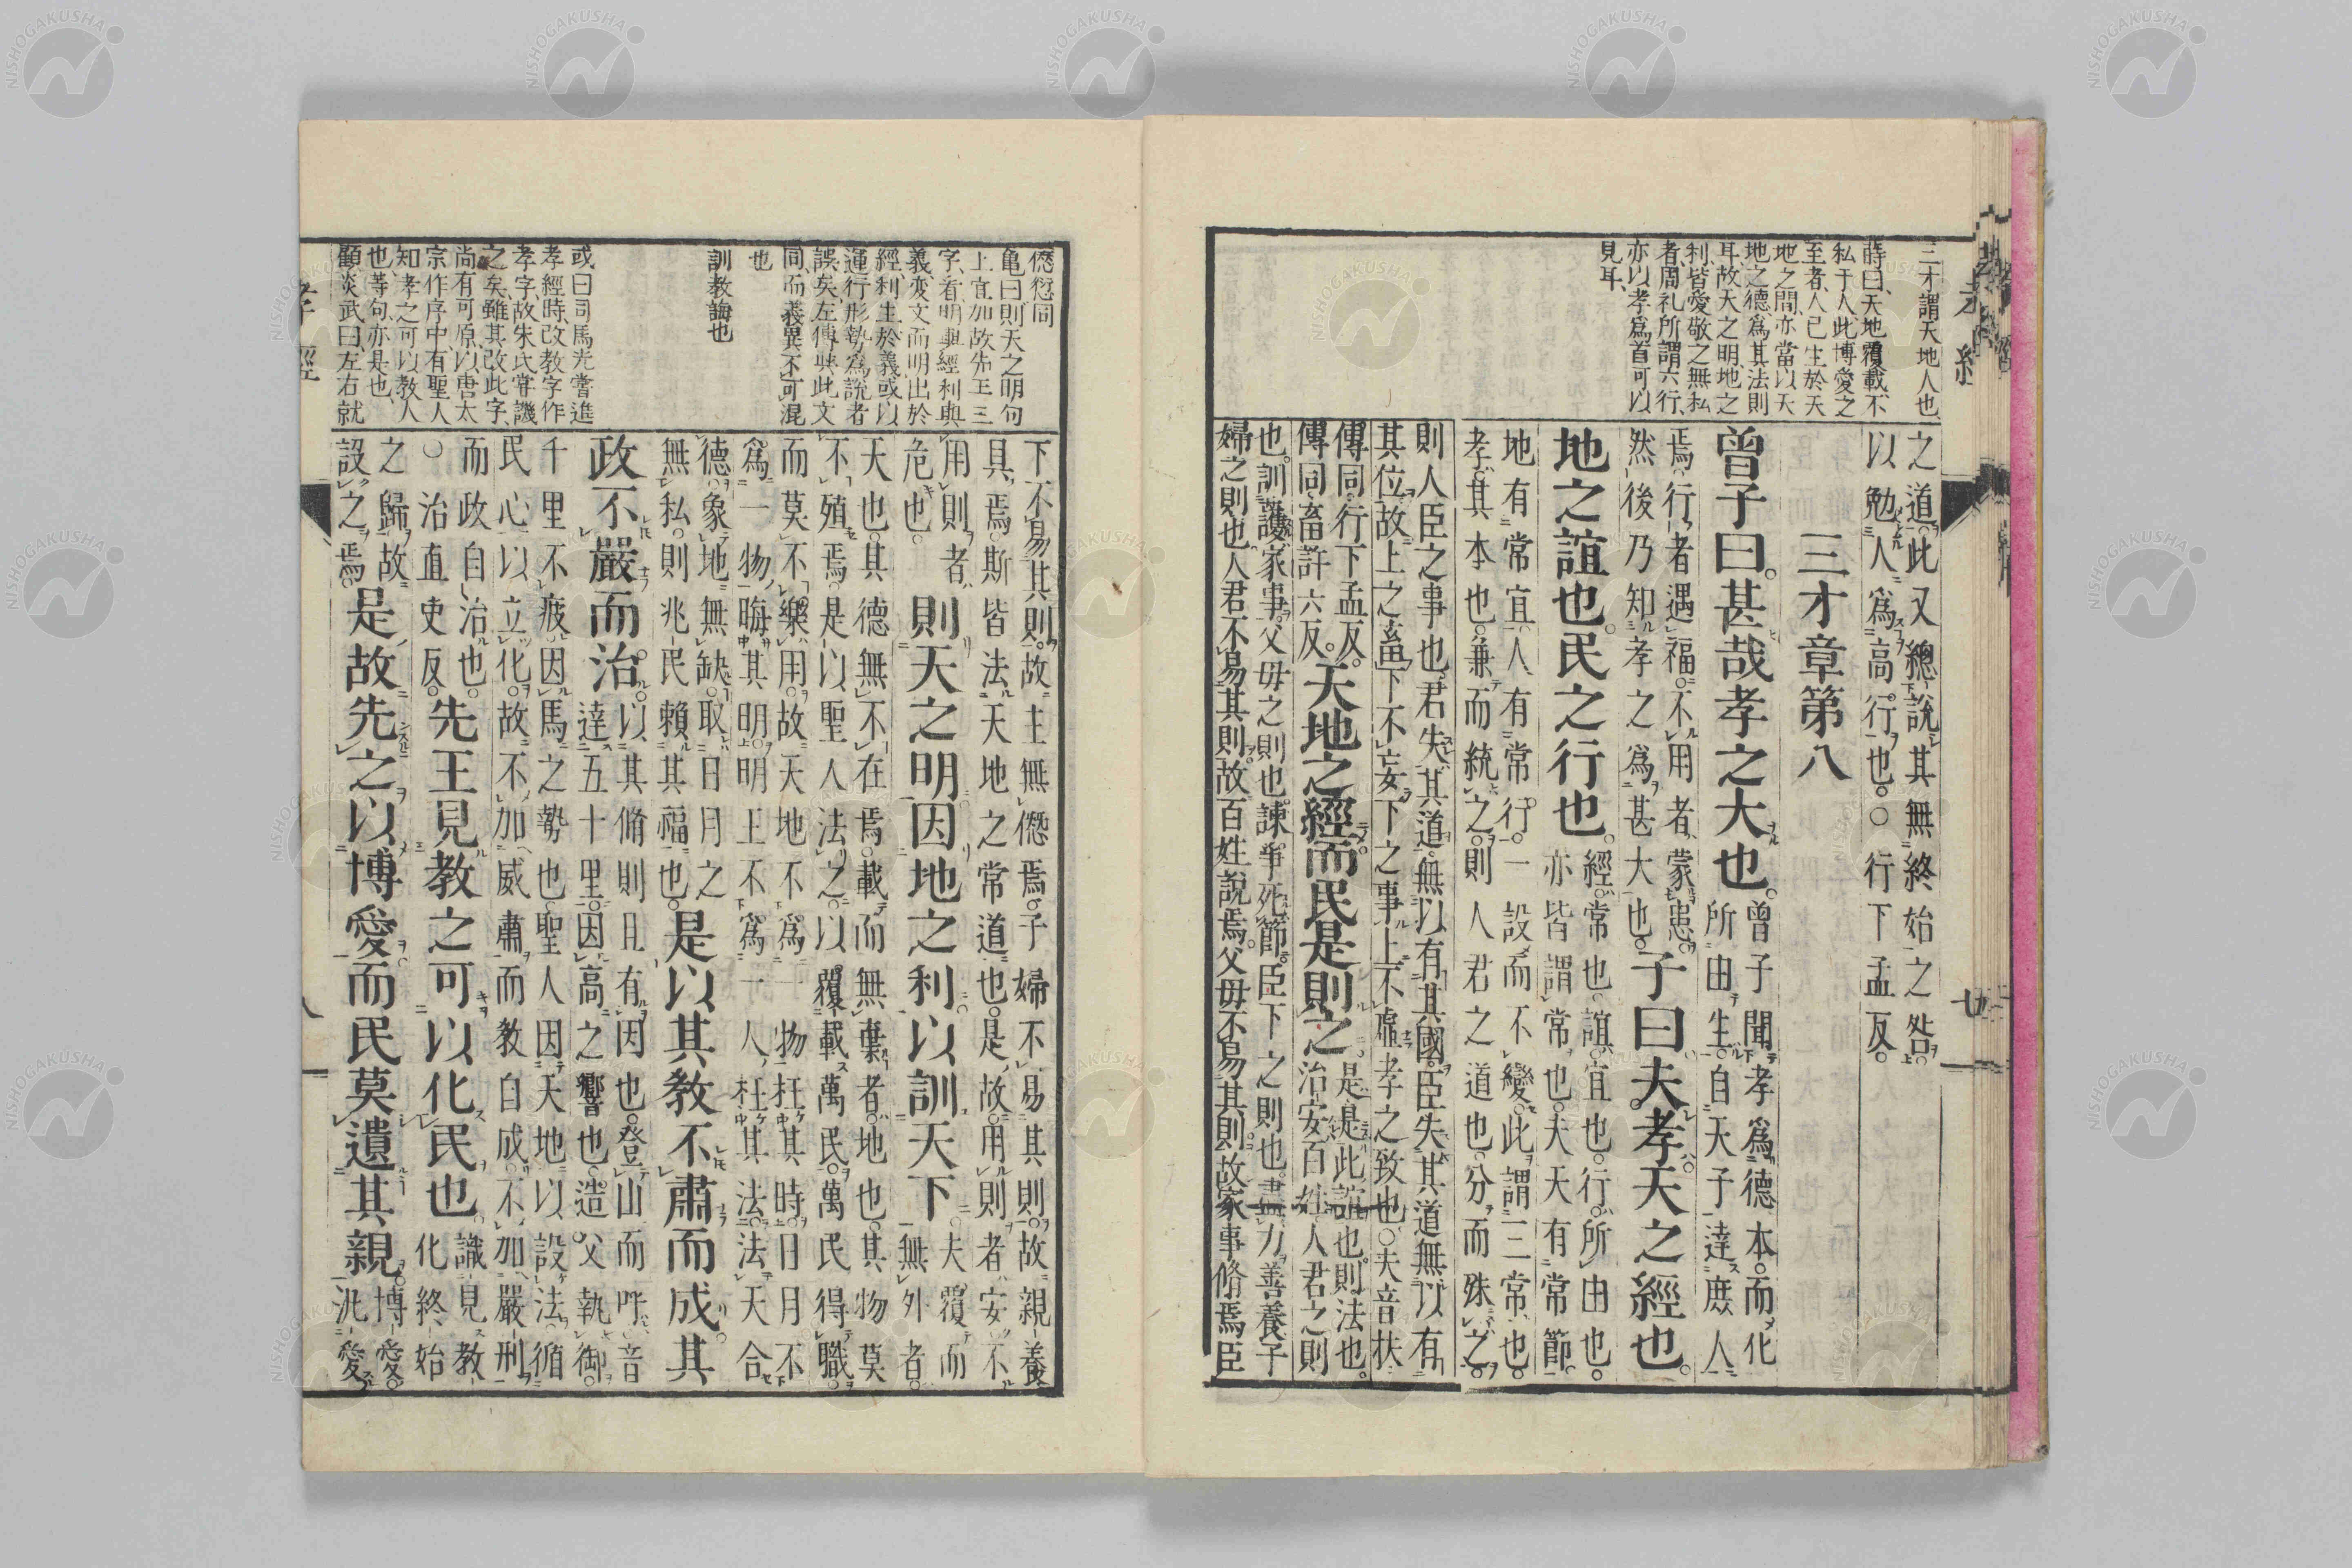 三才謂天地人也
蒔曰天地覆載不
私于人此博愛之
至者人已生於天
地之間亦當以天
地之德爲其法則
耳故天之明地之
利皆愛敬之無私
者周礼所謂六行
亦以孝爲首可以
見耳
之道此又總說其無終始之咎
以勉人爲高行也○行下孟反
三才章第八
曾子曰甚哉孝之大也
曾子聞孝爲德本而化
所由生自天子達庶人
焉行者遇福不用者蒙患
然後乃知孝之爲甚大也
子曰夫孝天之經也
地之誼也民之行也
經常也誼宜也行所由也
亦皆謂常也夫天有常節
地有常宜人有常行一設而不變此謂三常也
孝其本也兼而統之則人君之道也分而殊之
則人臣之事也君失其道無以有其國臣失其道無以有
其位故上之畜下不妄下之事上不虛孝之致也○夫音扶
傳同行下孟反
傳同畜許六反
天地之經而民是則之
是是此誼也則法也
治安百姓人君之則
也訓護家事父母之則也諫爭死節臣下之則也盡力善養子
婦之則也人君不易其則故百姓說焉父母不易其則故家事脩焉臣
孝經
七
僁愆同
亀曰則天之明句
上宜加故先王三
字看明與經利與
義変文而明出於
經利生於義或以
運行形勢爲說者
誤矣左傳與此文
同而義異不可混
也
訓教誨也
或曰司馬光嘗進
孝經時改教字作
孝字故朱氏常譏
之矣雖其改此字
尚有可原以唐太
宗作序中有聖人
知孝之可以教人
也等句亦是也
顧炎武曰左右就
下不易其則故主無僁焉子婦不易其則故親養
具焉斯皆法天地之常道也是故用則者安不
用則者
危也
則天之明因地之利以訓天下
夫覆而
無外者
天也其德無不在焉載而無棄者地也其物莫
不殖焉是以聖人法之以覆載萬民萬民得職
而莫不樂用故天地不爲一物枉其時日月不
爲一物晦其明明王不爲一人枉其法法天合
德象地無缺取日月之
無私則兆民賴其福也
是以其教不肅而成其
政不嚴而治
以其脩則且有因也登山而呼音
達五十里因高之響也造父執御
千里不疲因馬之勢也聖人因天地以設法循
民心以立化故不加威肅而教自成不加嚴刑
而政自治也
○治直吏反
先王見教之可以化民也
識見教
化終始
之歸故
設之焉
是故先之以博愛而民莫遺其親
博愛
汎愛
孝經